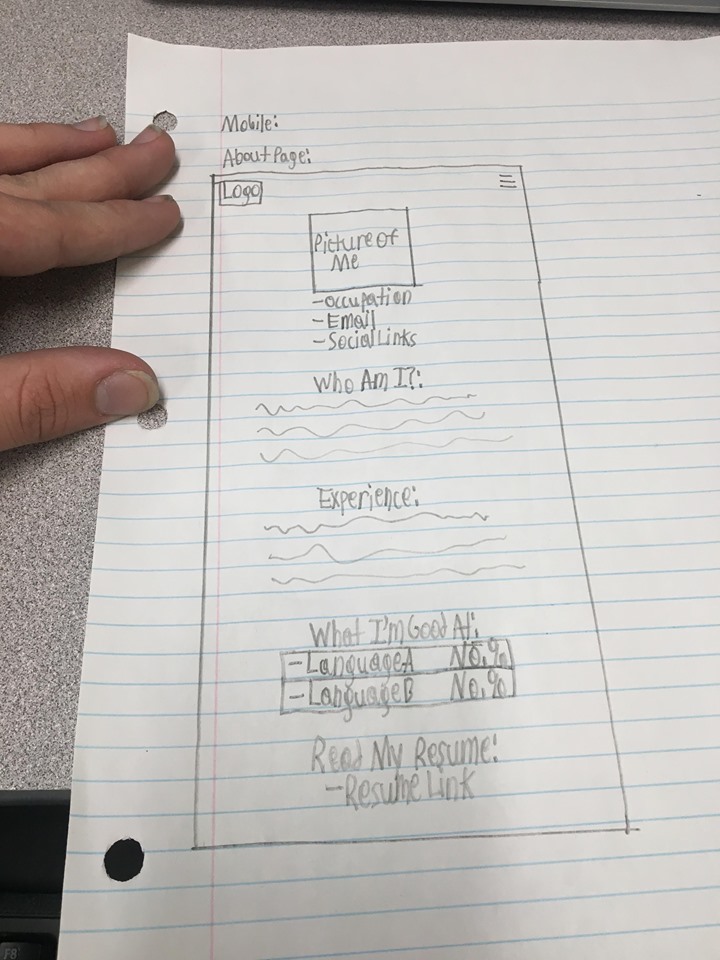 Mobile:
About Page:
Logo
Picture of
Me
-Occupation
-Email
-Social Links
Who Am I?:
Experience:
What I'm Good At:
-Language A No.%
-Language B No.%
Read My Resume:
-Resume Link
F8